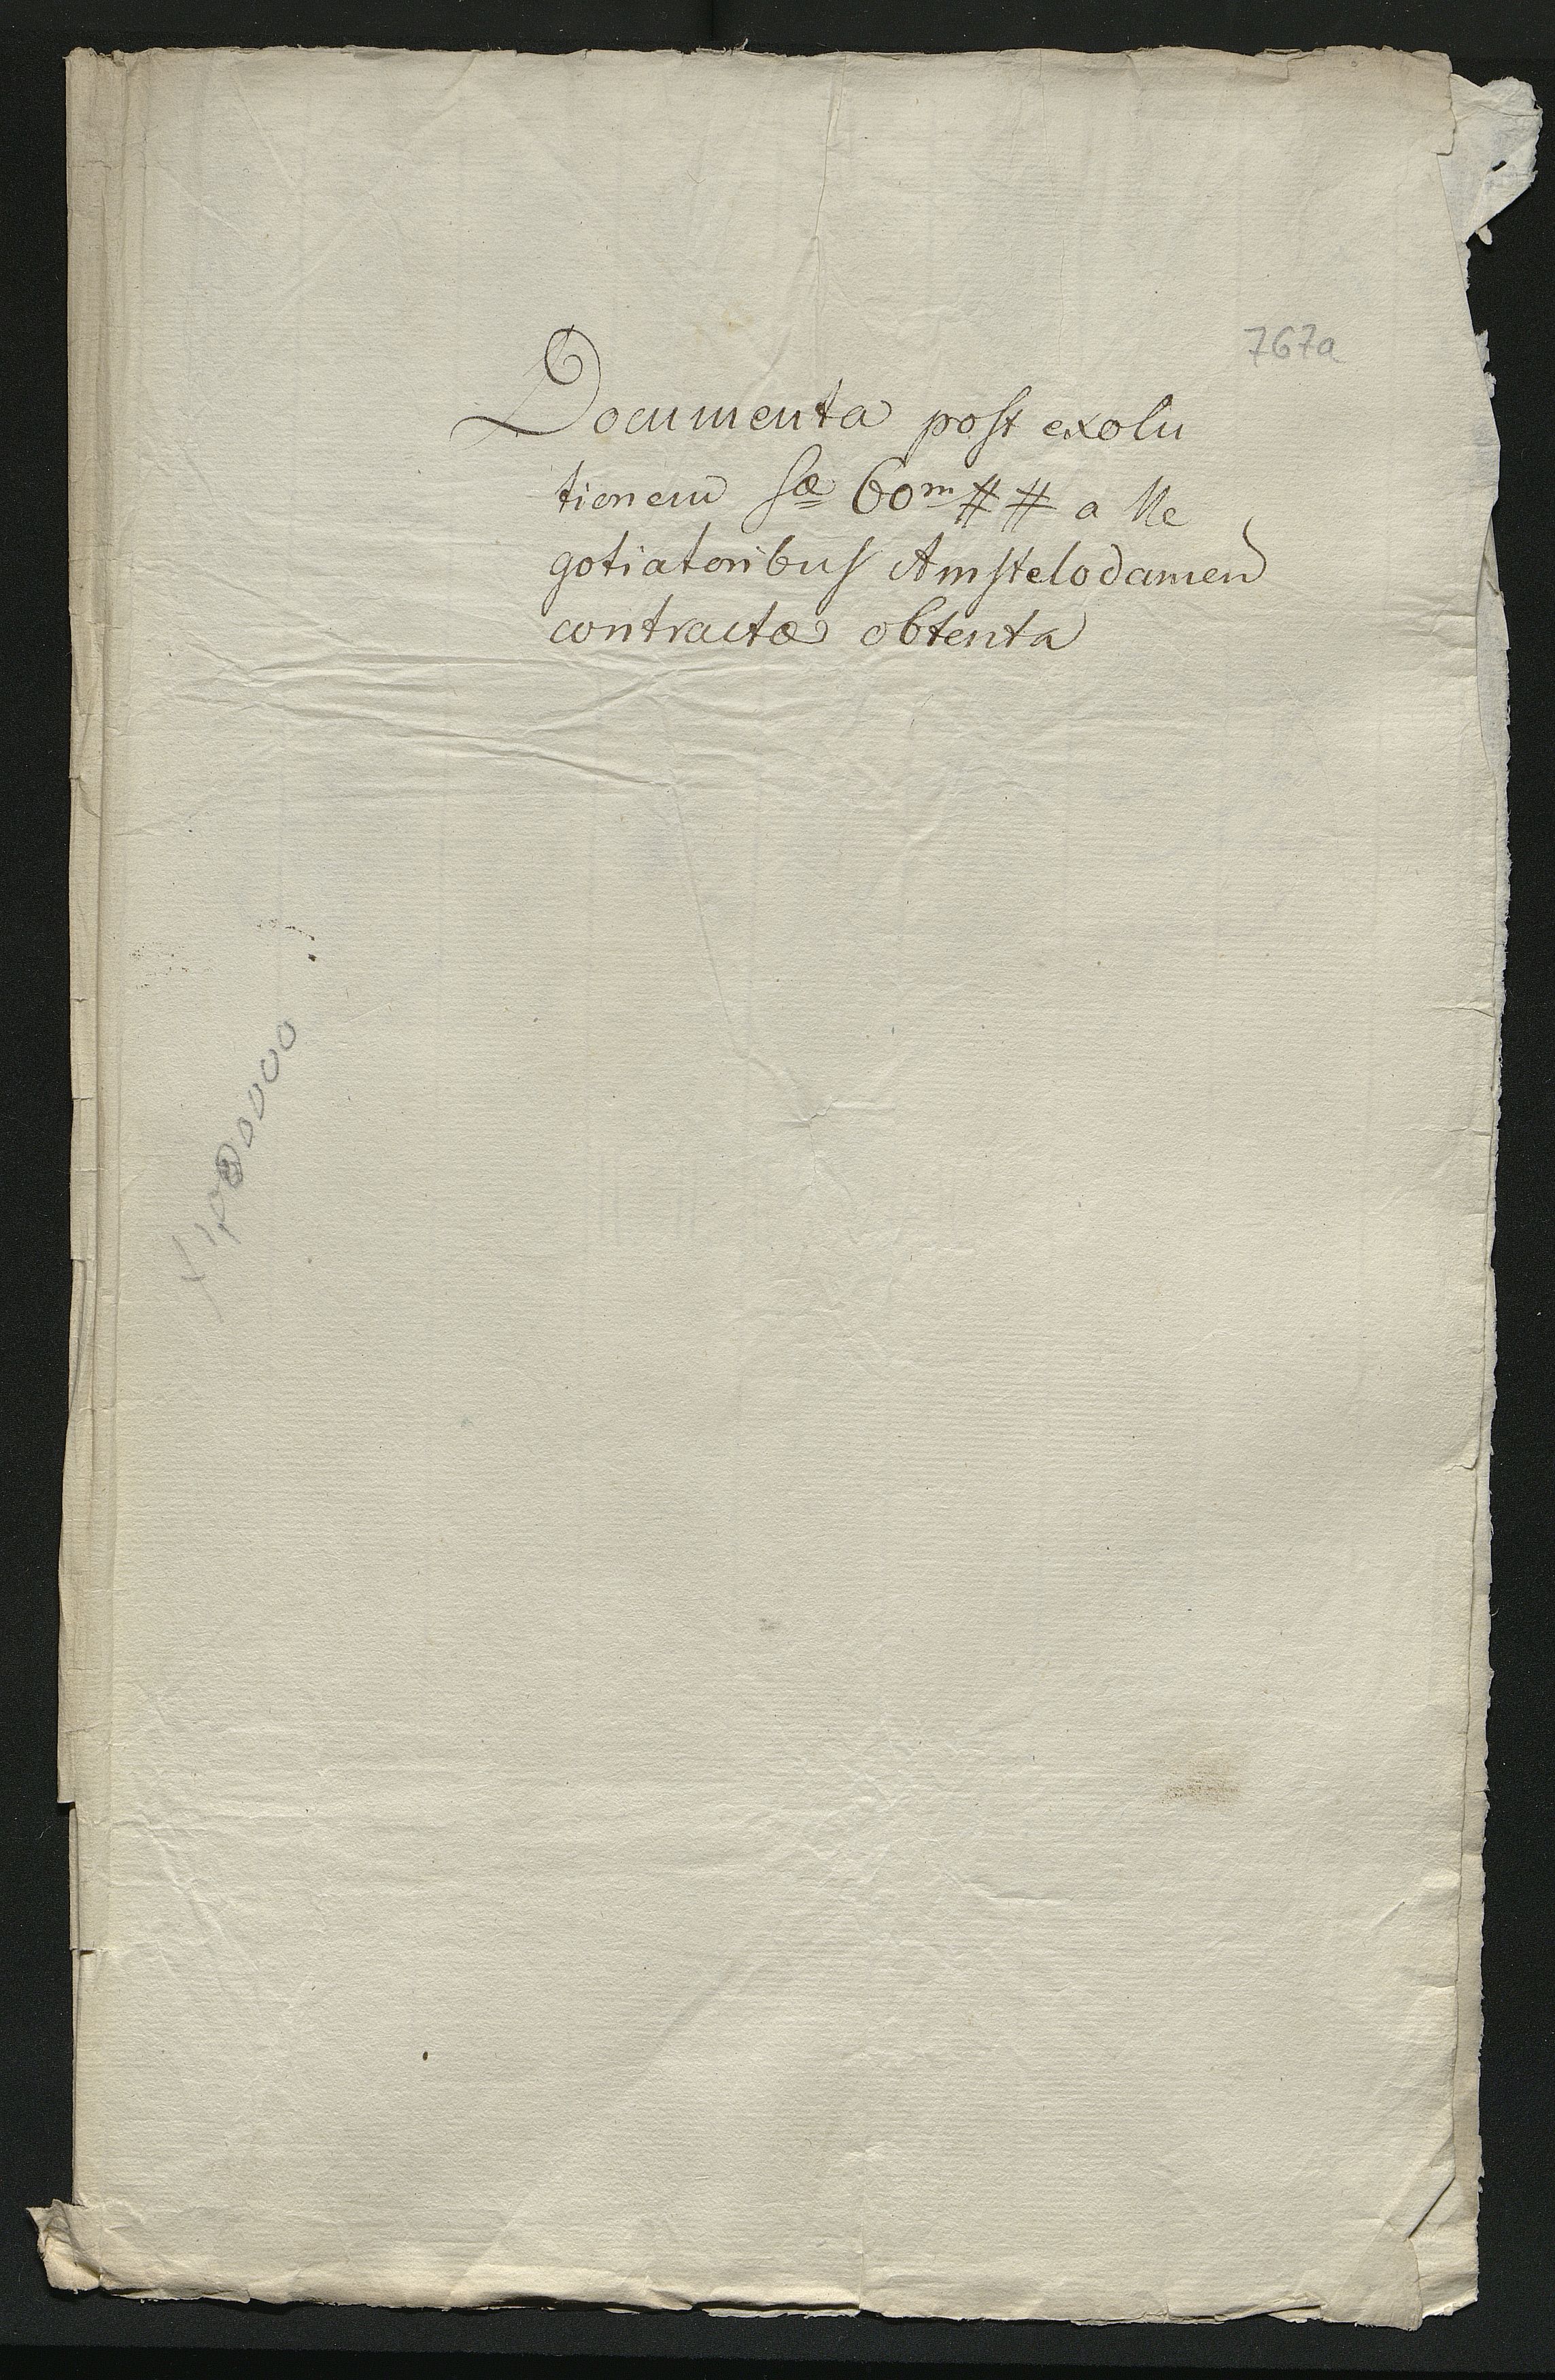 767a
Documenta post exolu
tionem sæ 60m ## a Ne
gotiatoribus Amstelodamen
contractæ obtenta